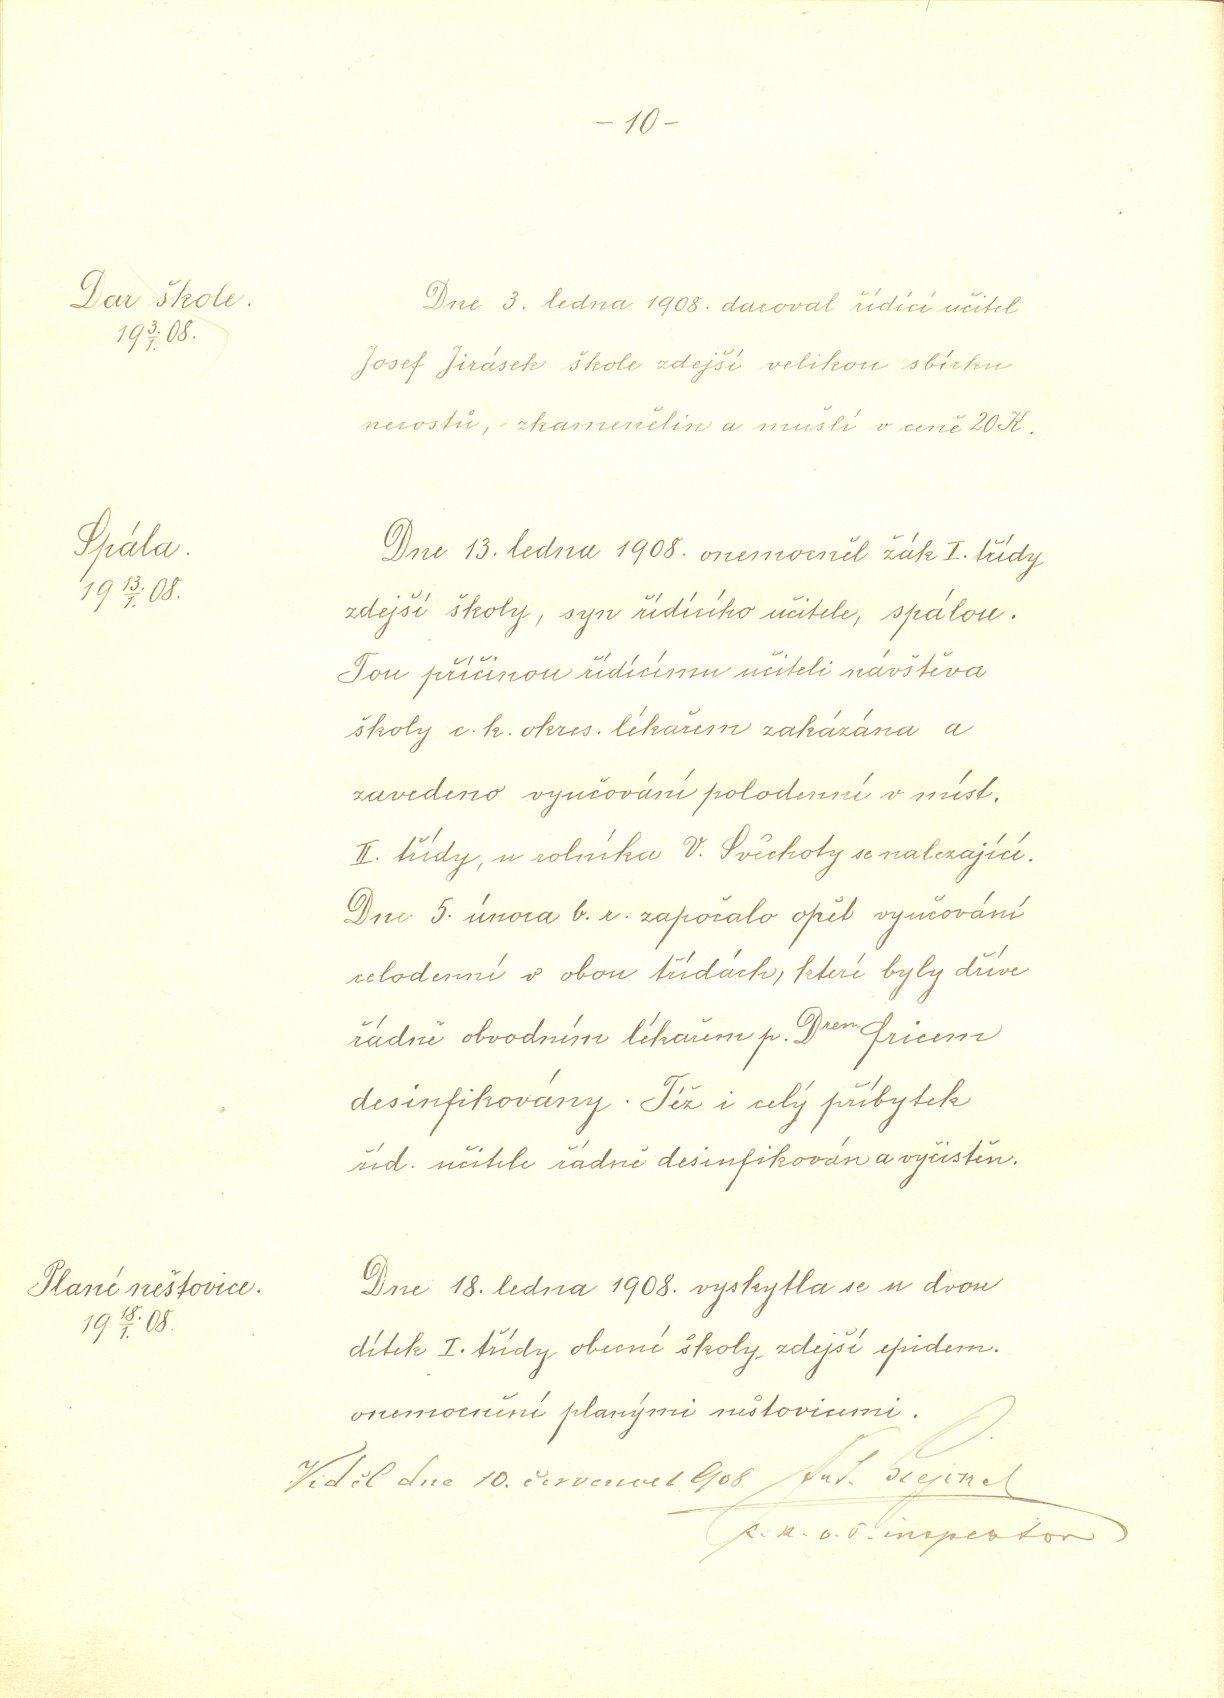 - 10 -
Dar škole.
19 3./1. 08.
Dne 3. ledna 1908. daroval řídící učitel
Josef Jirásek škole zdejší velikou sbírku
nerostů, zkamenělin a mušlí v ceně 20 K.
Spála.
19 13./1. 08.
Dne 13. ledna 1908. onemocněl žák I. třídy
zdejší školy, syn řídícího učitele, spálou.
Tou příčinou řídícímu učiteli návštěva
školy c. k. okres. lékařem zakázána a
zavedeno vyučování polodenní v míst.
II. třídy, u rolníka V. Svěchoty se nalezající.
Dne 5. února b. r. započalo opět vyučování
celodenní v obou třídách, které byly dříve
řádně obvodním lékařem p. Drem Fricem
desinfikovány. Též i celý příbytek
říd. učitele řádně desinfikován a vyčistěn.
Plané neštovice.
19 18./1. 08.
Dne 18. ledna 1908. vyskytla se u dvou
dítek I. třídy obecné školy zdejší epidem.
onemocnění planými neštovicemi.
Viděl dne 10. července 1908 Ant.
c. k. o. š. inspektor